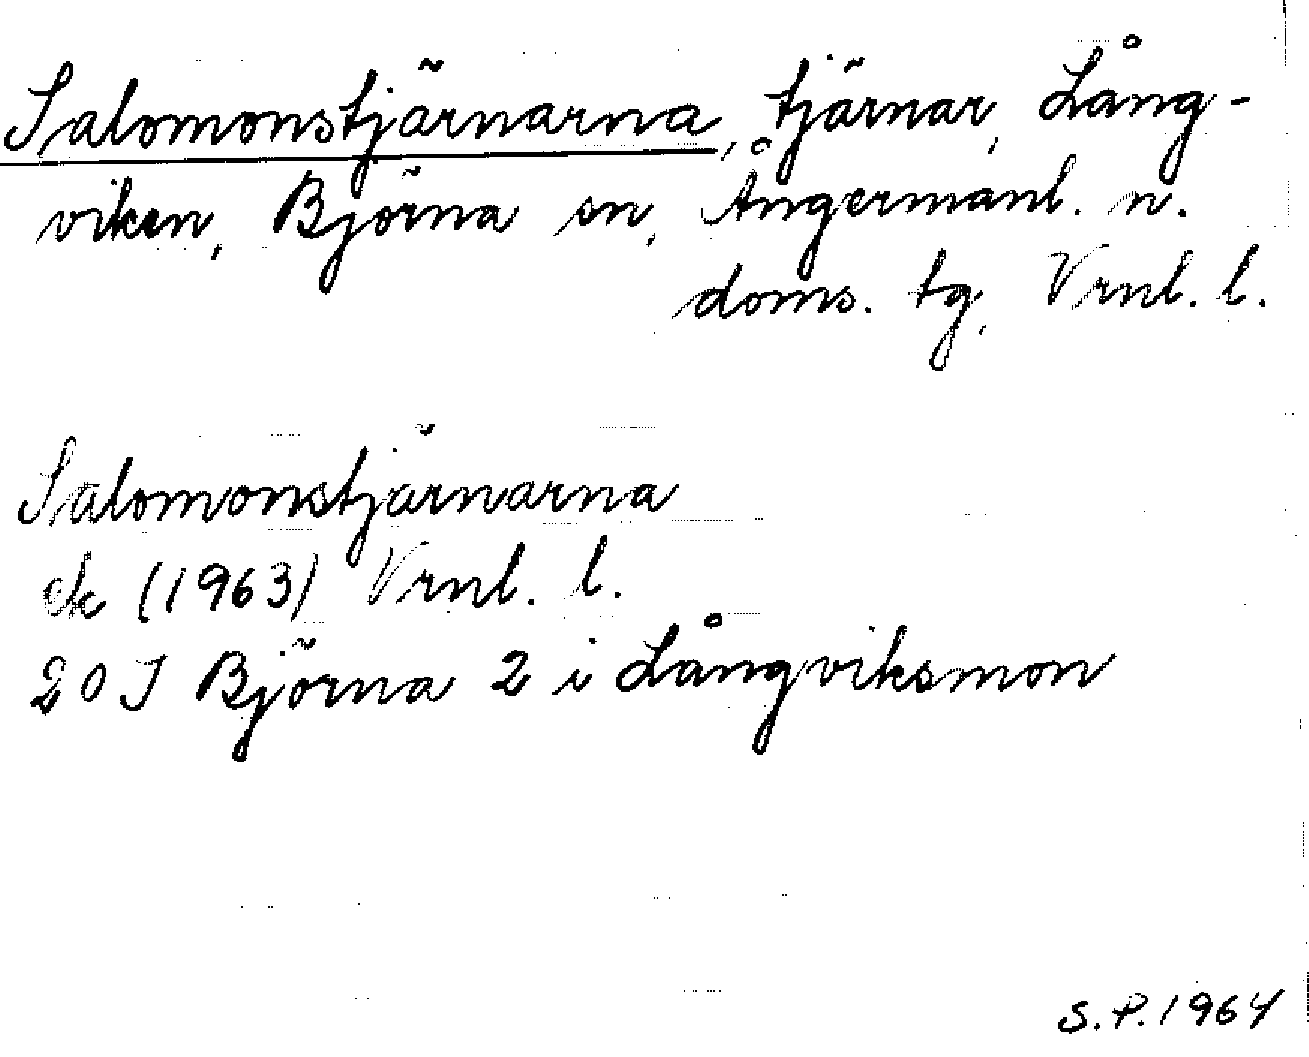 Salomonstjärnarna, tjärnar, Lång-
viken, Björna sn, Ångermanl. n.
doms. tg, Vrnl. l.
Salomonstjärnarna
ek (1963) Vrnl. l.
20 J Björna 2 i Långviksmon
S.P. 1964